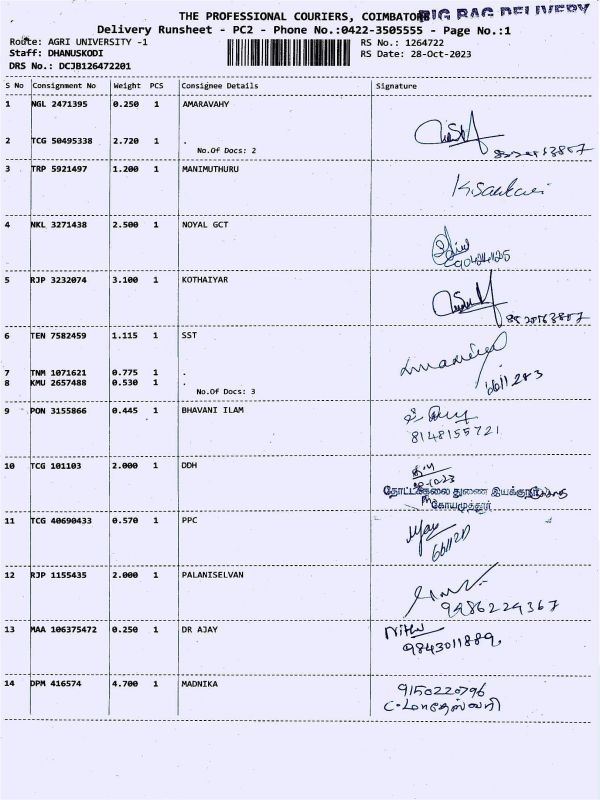 THE PROFESSIONAL COURIERS, COIMBATORE
BIG BAG DELIVERY
Delivery Runsheet - PC2 - Phone No.:0422-3505555 - Page No.:1
Route: AGRI UNIVERSITY -1 RS No.: 1264722
Staff: DHANUSKODI RS Date: 28-Oct-2023
DRS No.: DCJB126472201
S No Consignment No Weight PCS Consignee Details Signature
1 NGL 2471395 0.250 1 AMARAVAHY
2 TCG 50495338 2.720 1 .
No.Of Docs: 2
3 TRP 5921497 1.200 1 MANIMUTHURU
K.Sankari
4 NKL 3271438 2.500 1 NOYAL GCT
5 RJP 3232074 3.100 1 KOTHAIYAR
6 TEN 7582459 1.115 1 SST
7 TNM 1071621 0.775 1 .
8 KMU 2657488 0.530 1 .
6611283
No.Of Docs: 3
9 PON 3155866 0.445 1 BHAVANI ILAM
8148155721
10 TCG 101103 2.000 1 DDH
தோட்டக்கலை துணை இயக்குநர்
கோயமுத்தூர்
11 TCG 40690433 0.570 1 PPC
12 RJP 1155435 2.000 1 PALANISELVAN
9486224367
13 MAA 106375472 0.250 1 DR AJAY
Nithu
9843011889
14 DPM 416574 4.700 1 MADNIKA
9150220796